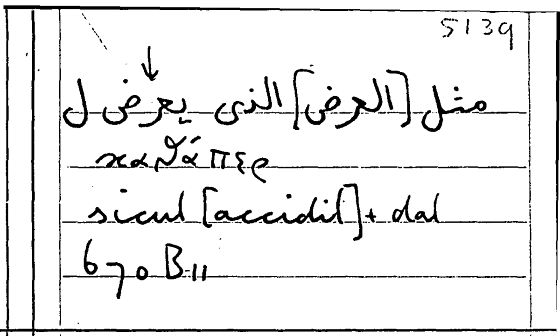 5139
↓
مثل [العرض] الذى يعرض ل
καθάπερ
sicut [accidit] + dat
670 B11